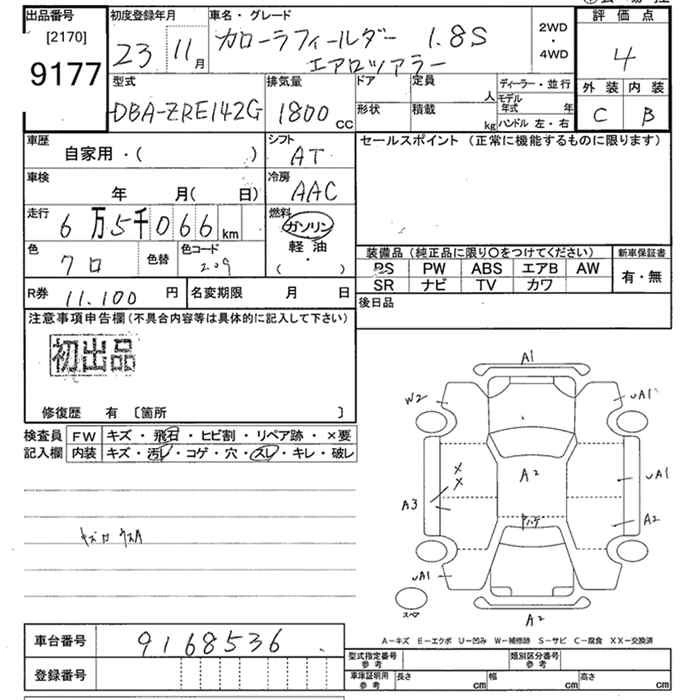 出品番号 初度登録年月 車名・グレード 評価点
[2170] 23 11月 カローラフィールダー 1.8S 2WD・4WD 4
9177 エアロツアラー
型式 排気量 ドア 定員 人 ディーラー・並行 外装 内装
DBA-ZRE142G 1800cc 形状 積載 kg モデル年式 年 C B
ハンドル 左・右
車歴 シフト セールスポイント (正常に機能するものに限ります)
自家用・( ) AT
車検 冷房
年 月( 日) AAC
走行 燃料
6万5千066km ガソリン
軽油
色 色替 色コード ( ・ ) 装備品 (純正品に限り○をつけてください) 新車保証書
クロ 209 PS PW ABS エアB AW 有・無
SR ナビ TV カワ
R券 11.100円 名変期限 月 日 後日品
注意事項申告欄(不具合内容等は具体的に記入して下さい)
初出品
修復歴 有 〔箇所 〕
検査員 FW キズ・飛石・ヒビ割・リペア跡・×要
記入欄 内装 キズ・汚レ・コゲ・穴・スレ・キレ・破レ
A1
W2 uA1
A2
× uA1
×
A3 A2
uA1
スペア A2
A-キズ E-エクボ U-凹み W-補修跡 S-サビ C-腐食 XX-交換済
車台番号 9168536
型式指定番号 参考 類別区分番号 参考
登録番号 車庫証明用 参考 長さ cm 幅 cm 高さ cm